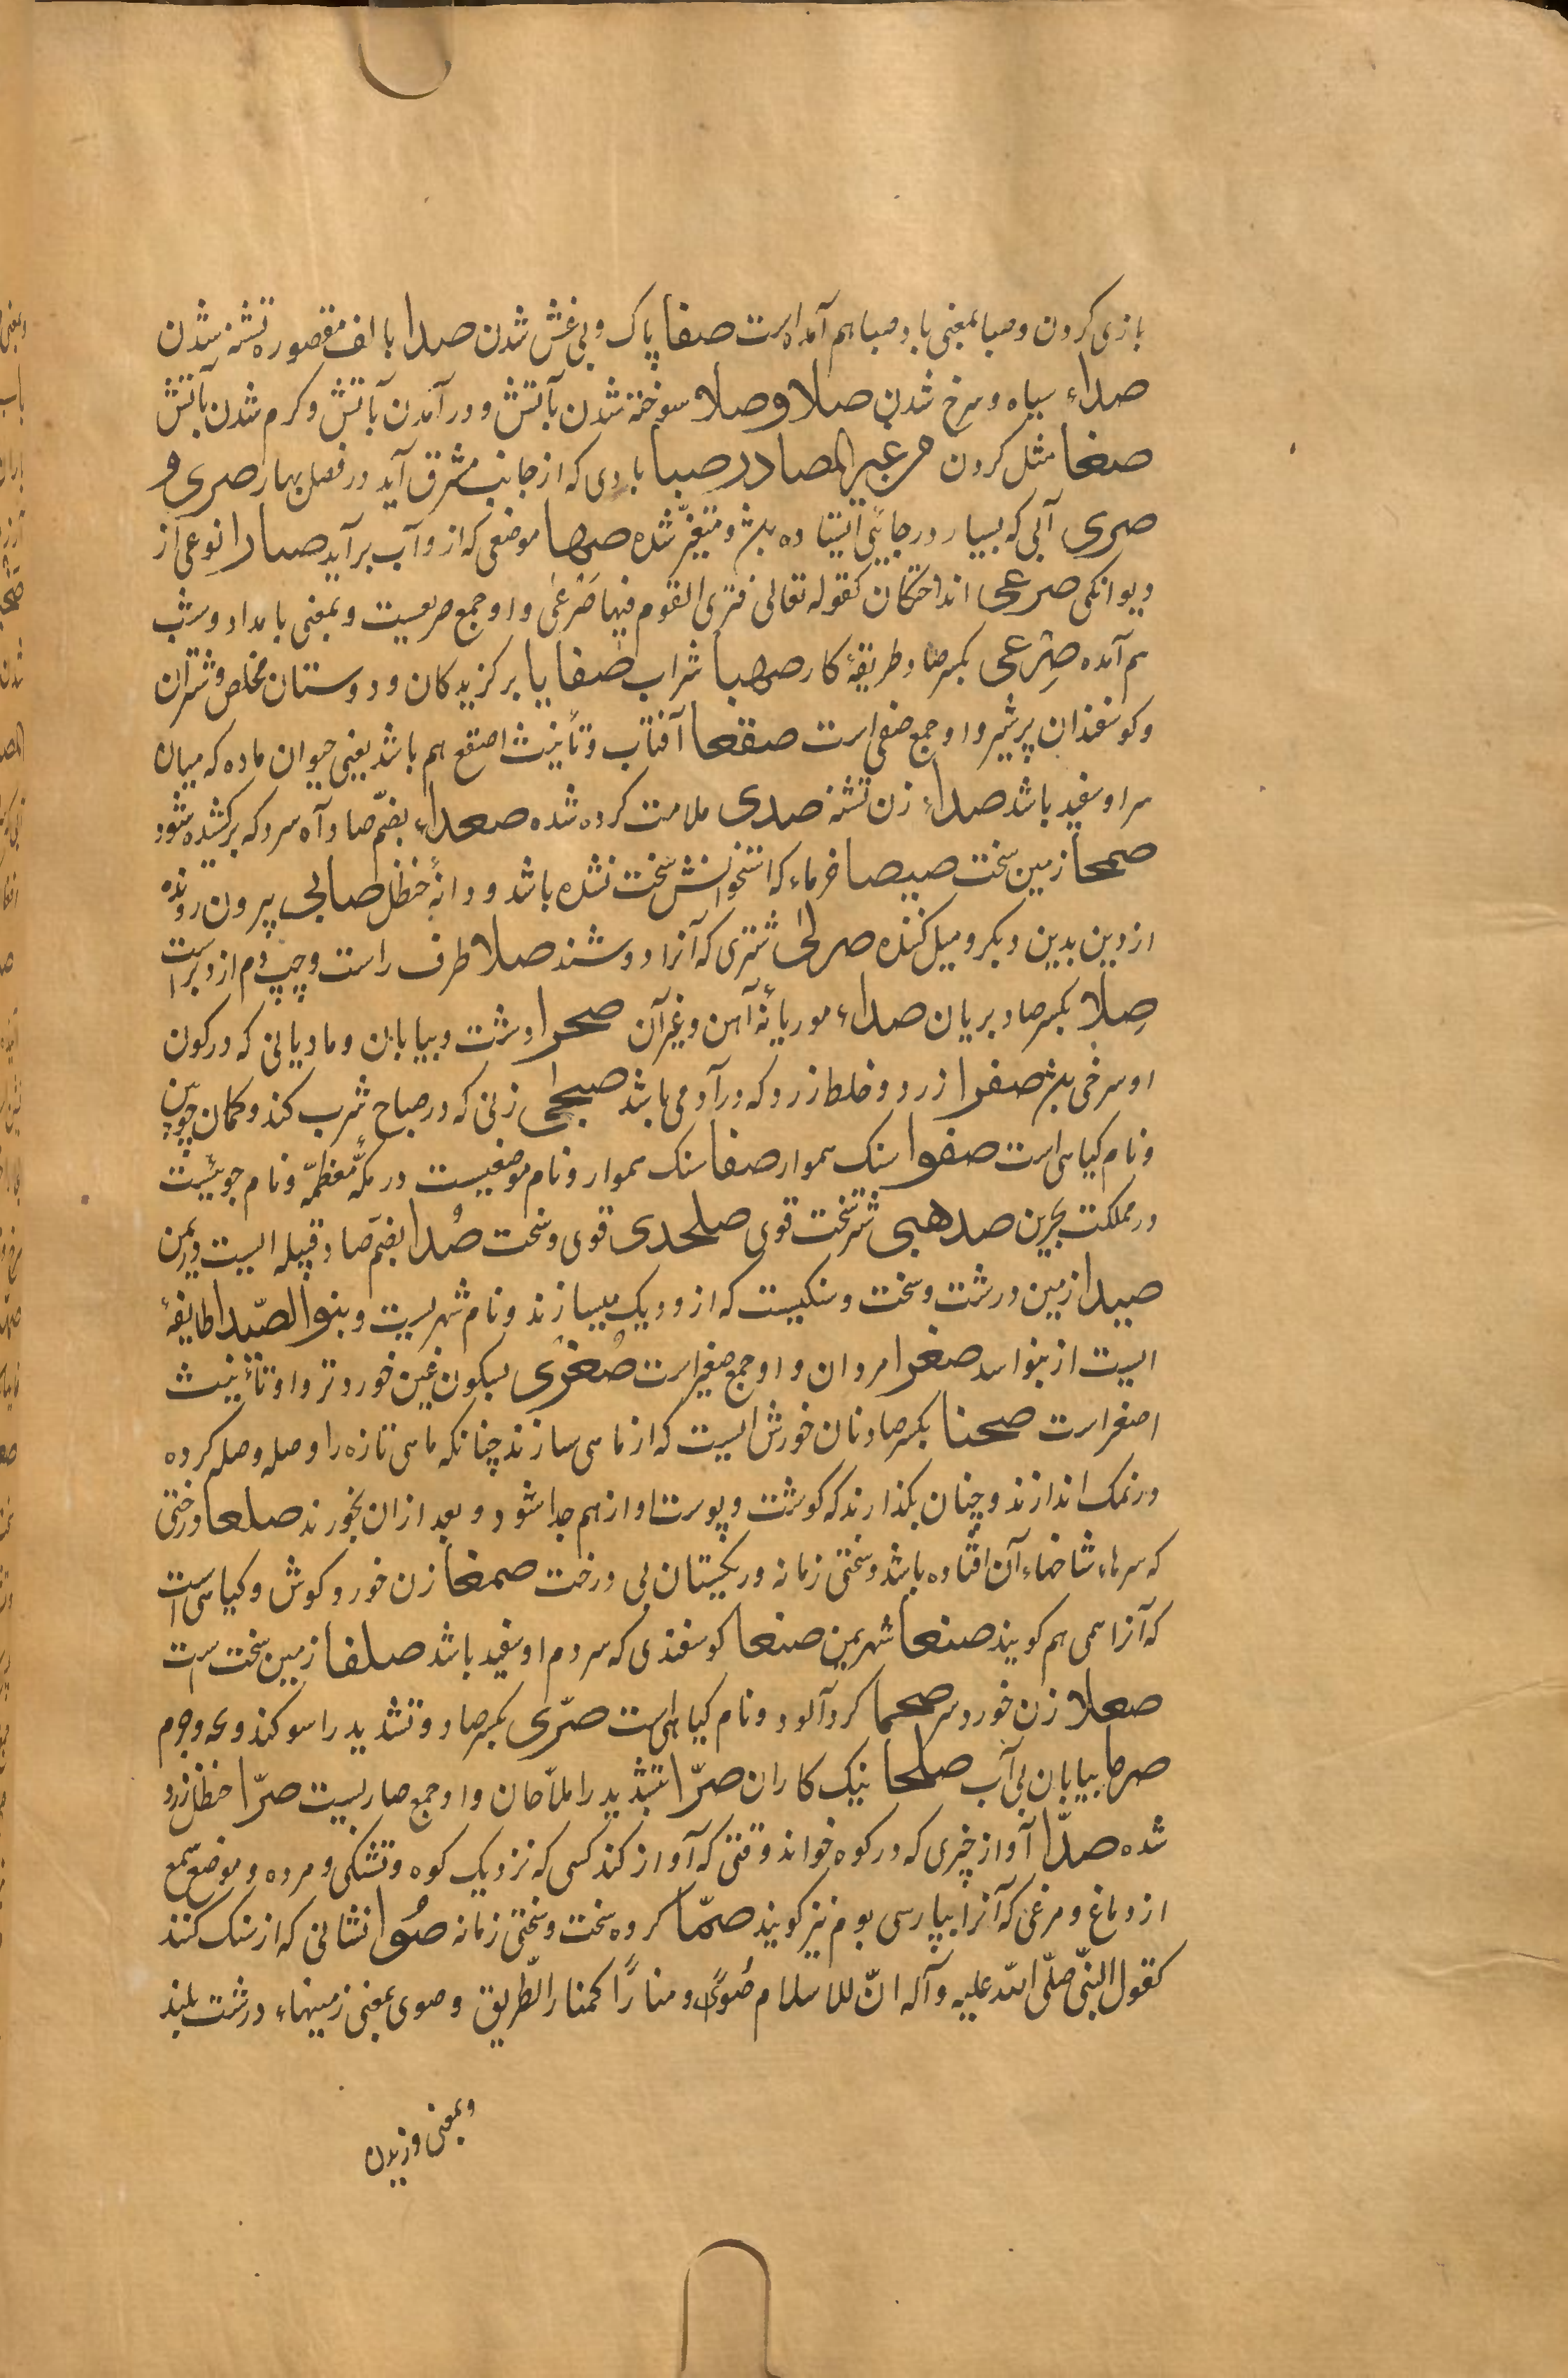 بازی کردن و صبا بمعنی باد صبا هم آمده است صفا پاک و بی غش شدن صدا با الف مقصوره تشنه شدن
صداء سیاه و سرخ شدن صلا و صلا سوخته شدن بآتش و درآمدن بآتش و کرم شدن بآتش
صغا مثل کردن من غیر المصادر صبا بادی که از جانب مشرق آید در فصل بهار صری و
صری آبی که بسیار در جائی ایستاده بلش و متغیّر شده صها موضعی که ازو آب برآید صارا نوعی از
دیوانکی صرعی انداختکان کقوله تعالی فتری القوم فیها صَرْعٰی و او جمع صریعست و بمعنی بامداد و شب
هم آمده صِرعی بکسر صاد طریقهٔ کار صهبا شراب صفایا برکزیدکان و دوستان مخلص و شتران
و کوسفندان پرشیر و او جمع صفی است صقعا آفتاب و تأنیث اصقع هم باشد یعنی حیوان ماده که میان
سر او سفید باشد صداء زن تشنه صدی ملامت کرده شده صعداء بضمّ صاد آه سرد که برکشیده شود
صمحا زمین سخت صیصا خرماء که استخوانش سخت نشده باشد و دانهٔ حنظل صابی بیرون رونده
از دین بدین دیکر و میل کننده صرلی شتری که آنرا دوشند صلا طرف راست و چپ دم ازو براست
صِلا بکسر صاد بریان صداء موریانهٔ آهن و غیر آن صحرا دشت و بیابان و مادیانی که در کون
او سرخی بلش صفرا زرد و خلط زرد که در آدمی باشد صبحی زنی که در صباح شرب کند و کمان چوبین
و نام کیاهی است صفوا سنک هموار صفا سنک هموار و نام موضعیست در مکّهٔ معظمّه و نام جوئیست
در مملکت بحرین صدهبی شتر سخت قوی صلحدی قوی و سخت صُدا بضمّ صاد قبیله ایست در یمن
صیدا زمین درشت و سخت و سنکیست که ازو دیک میسازند و نام شهریست و بنوالصّیدا طایفهٔ
ایست از بنو اسد صغرا مردان و او جمع صغیر است صُغرٰی بسکون غین خوردتر و او تأنیث
اصغر است صحنا بکسر صاد نان خورش ایست که از ماهی سازند چنانکه ماهی تازه را وصله وصله کرده
در نمک اندازند و چنان بکذارند که کوشت و پوست او از هم جدا شود و بعد از ان بخورند صلعا درختی
که سرهاء شاخهاء آن افتاده باشد و سختی زمانه و ریکستان بی درخت صمغا زن خورد کوش و کیاهی است
که آنرا همی هم کویند صنعا شهر یمن صنعا کوسفندی که سر دم او سفید باشد صلفا زمین سخت است
صعلا زن خورد سر صحما کردآلود و نام کیاهی است صرّی بکسر صاد و تشدید را سوکند و عد و جرم
صرما بیابان بی آب صلحا نیک کاران صرّا بتشدید را ملاّحان و او جمع صاریست صرّا حنظل زرد
شده صدّا آواز چیزی که در کوه خواند وقتی که آواز کند کسی که نزدیک کوه و تشنکی و مرده و موضع سمع
از دماغ و مرغی که آنرا بپارسی بوم نیز کویند صمّا کروه سخت و سختی زمانه صُوا نشانی که از سنک کنند
کقول النّبیّ صلّی اللّه علیه و آله انّ للاسلام صُوًی و منارًا کمنار الطّریق و صوی بمعنی زمینهاء درشت بلند
و بمعنی وزیدن